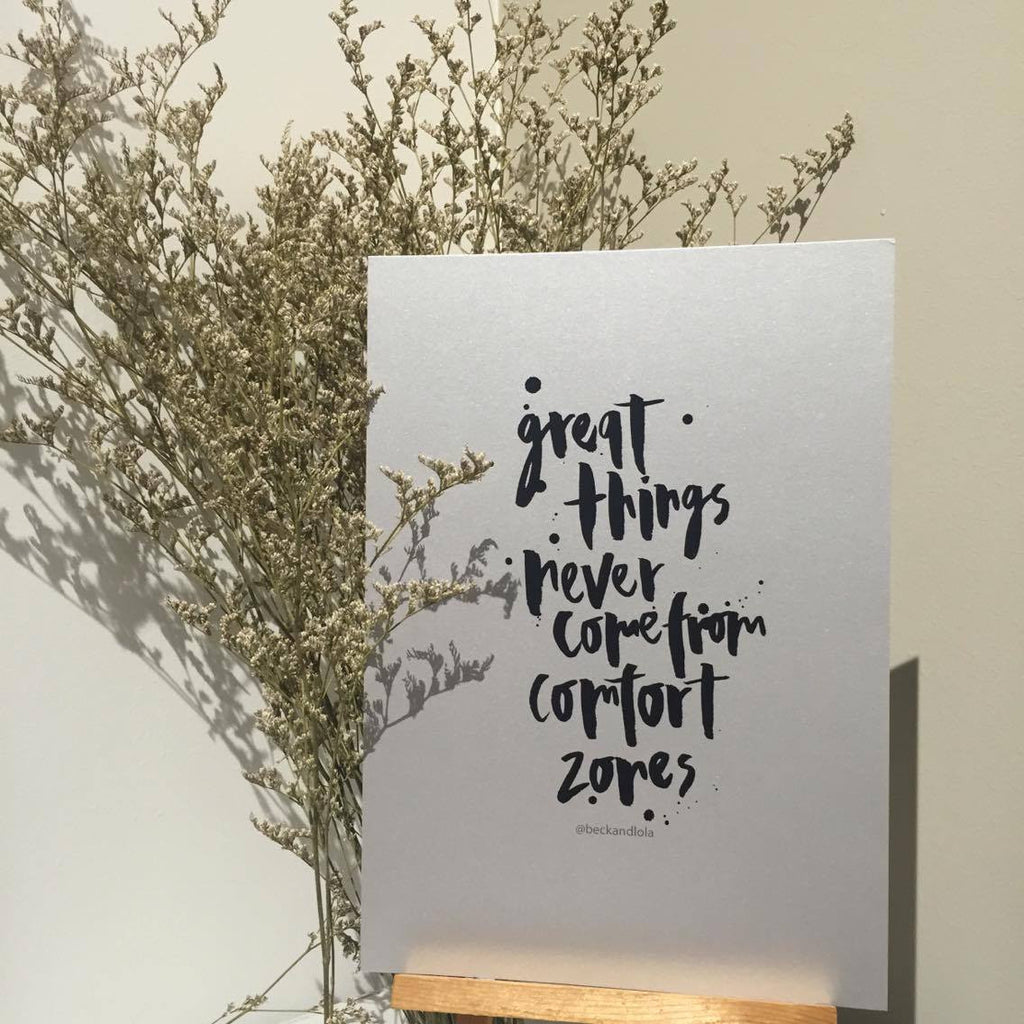 great
things
never
come from
comfort
zones
@beckandlola